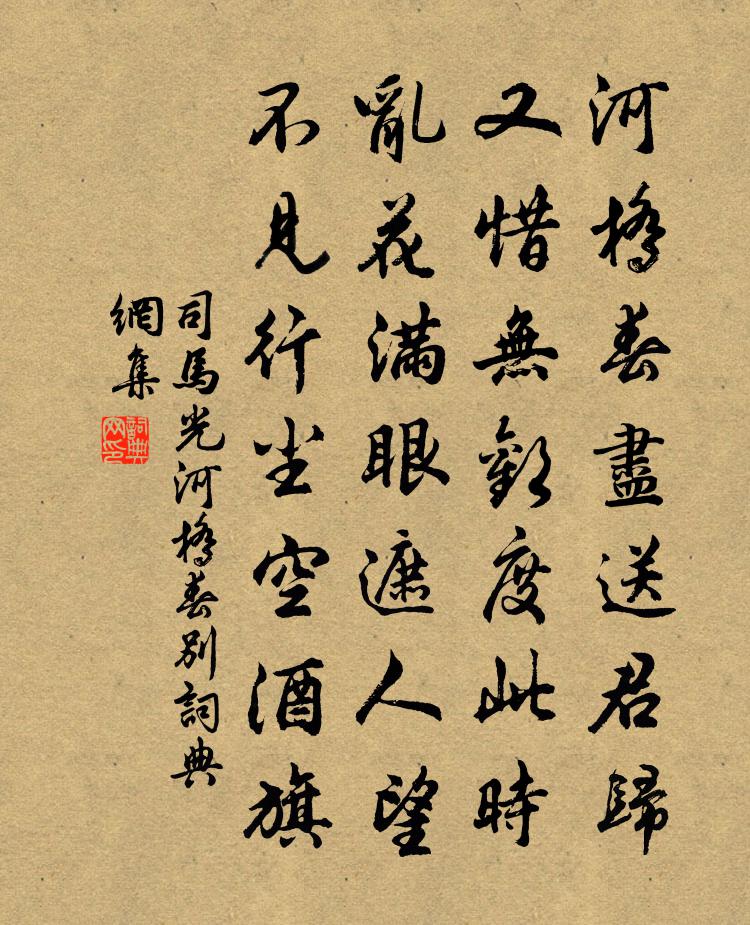 河橋春盡送君歸
又惜無歡度此時
亂花滿眼遮人望
不見行塵空酒旗
司馬光河橋春別詞典
網集
詞典
网印